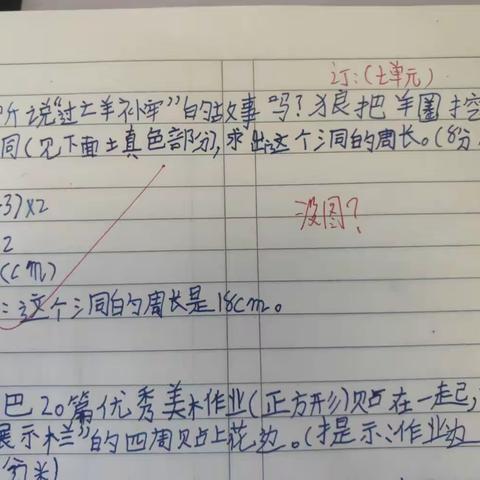 订:(七单元)
听说"过亡羊补牢"的故事吗?狼把羊圈挖
洞(见下面土真色部分),求出这个洞的周长。(8分
3)×2
2
(cm)
:这个洞的周长是18cm。
没图?
巴20篇优秀美术作业(正方形)贴在一起,
展示栏"的四周贴上花边。(提示:作业边
分米)